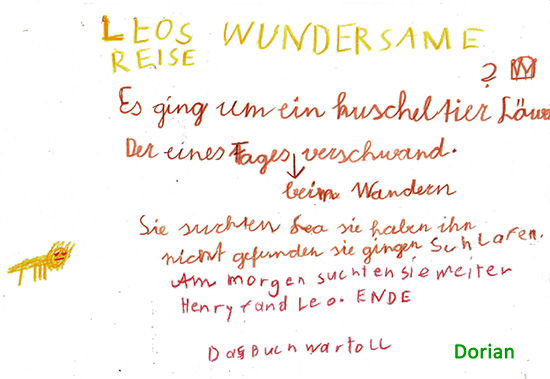 LEOS WUNDERSAME
REISE
? W
Es ging um ein kuscheltier Löw
Der eines Tages verschwand.
beim Wandern
Sie suchten Leo sie haben ihn
nicht gefunden sie gingen Schlafen.
Am morgen suchten sie weiter
Henry fand Leo. ENDE
Das Buch war toll
Dorian